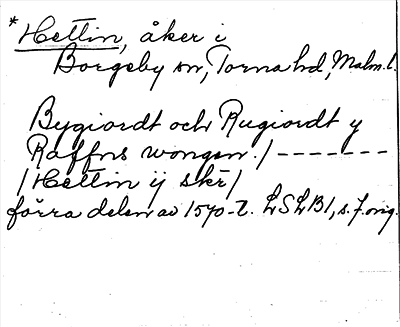 *Hettin, åker i
Borgeby sn, Torna hd, Malm. l.
Bygiordt och Rugiordt y
Raffns wongen. /-------
/Hettin ij skr/
förra delen av 1570-t. LSLB1, s. 7. orig.